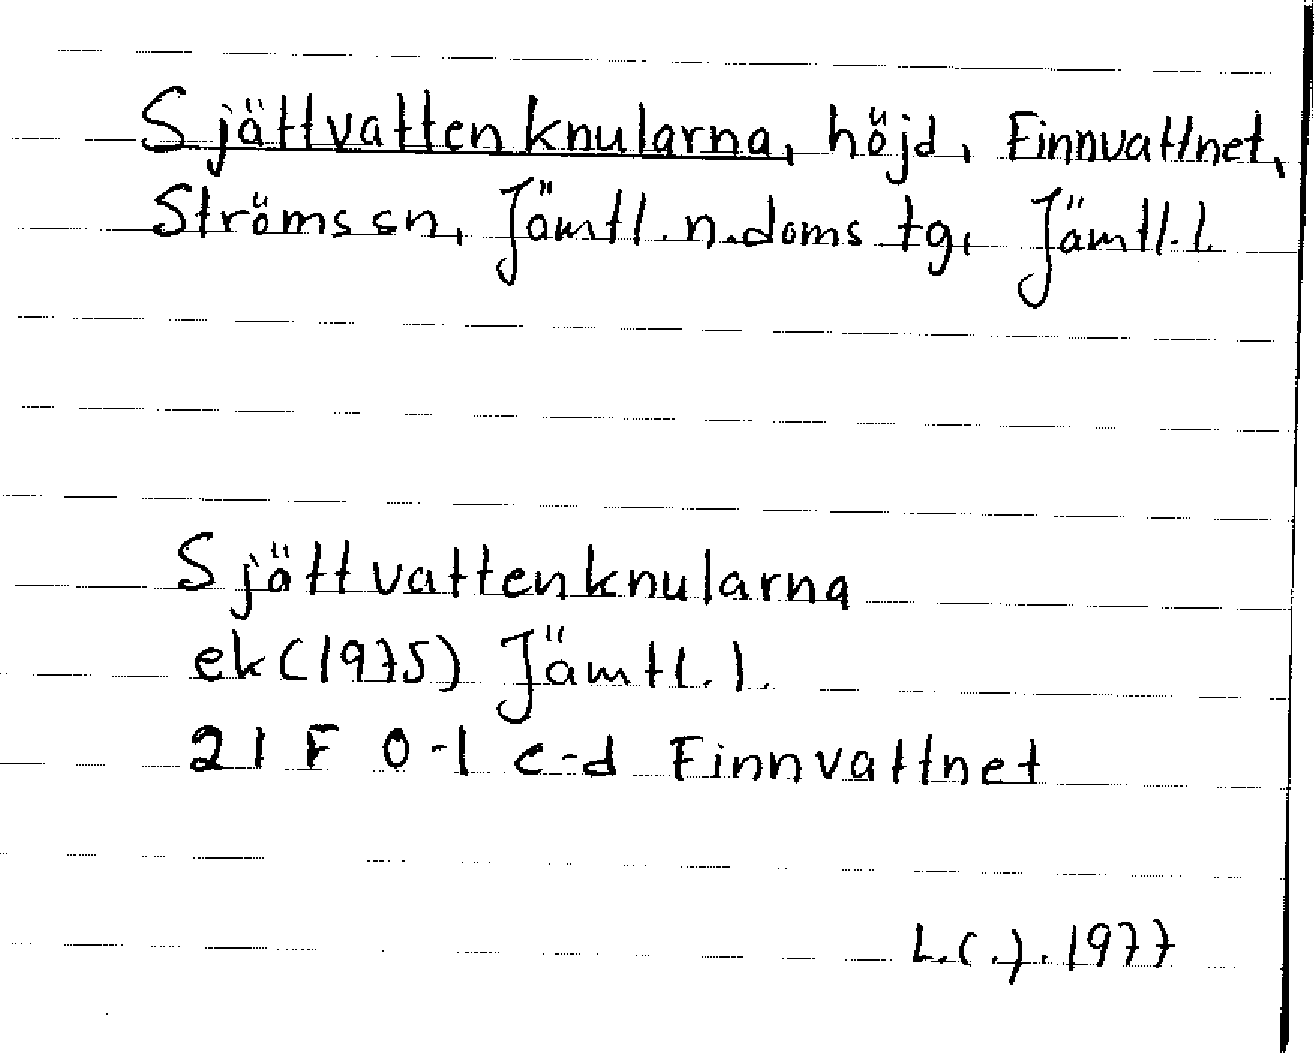 Sjättvattenknularna, höjd, Finnvattnet,
Ströms sn, Jämtl.n.doms tg, Jämtl.l.
Sjättvattenknularna
ek (1975) Jämtl.l.
21 F 0-1 c-d Finnvattnet
1977